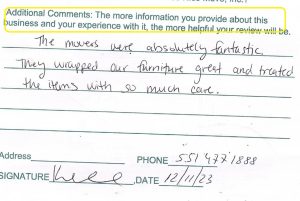 Additional Comments: The more information you provide about this
business and your experience with it, the more helpful your review will be.
The movers were absolutely fantastic.
They wrapped our furniture great and treated
the items with so much care.
Address
PHONE 551 477 1888
SIGNATURE DATE 12/11/23